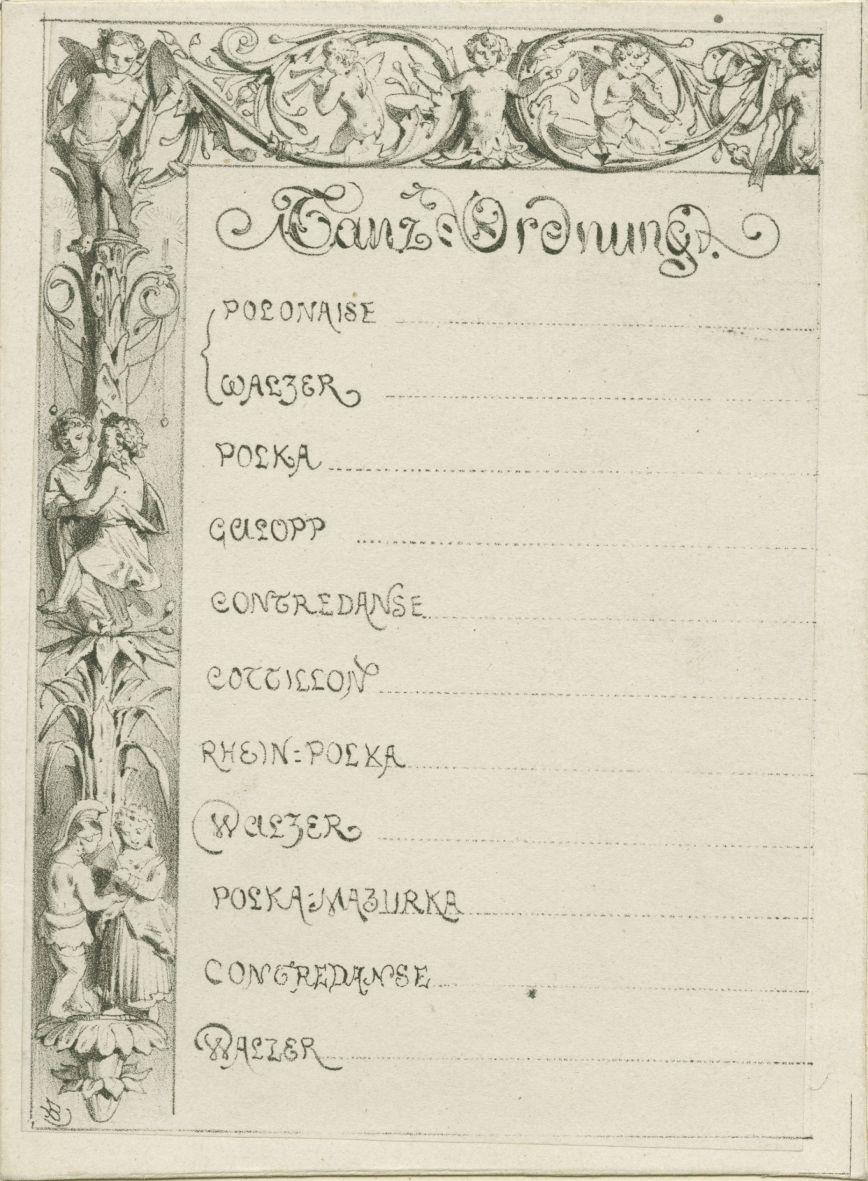 Tanz=Ordnung.
POLONAISE
WALZER
POLKA
GALOPP
CONTREDANSE
COTTILLON
RHEIN=POLKA
WALZER
POLKA=MAZURKA
CONTREDANSE
WALZER